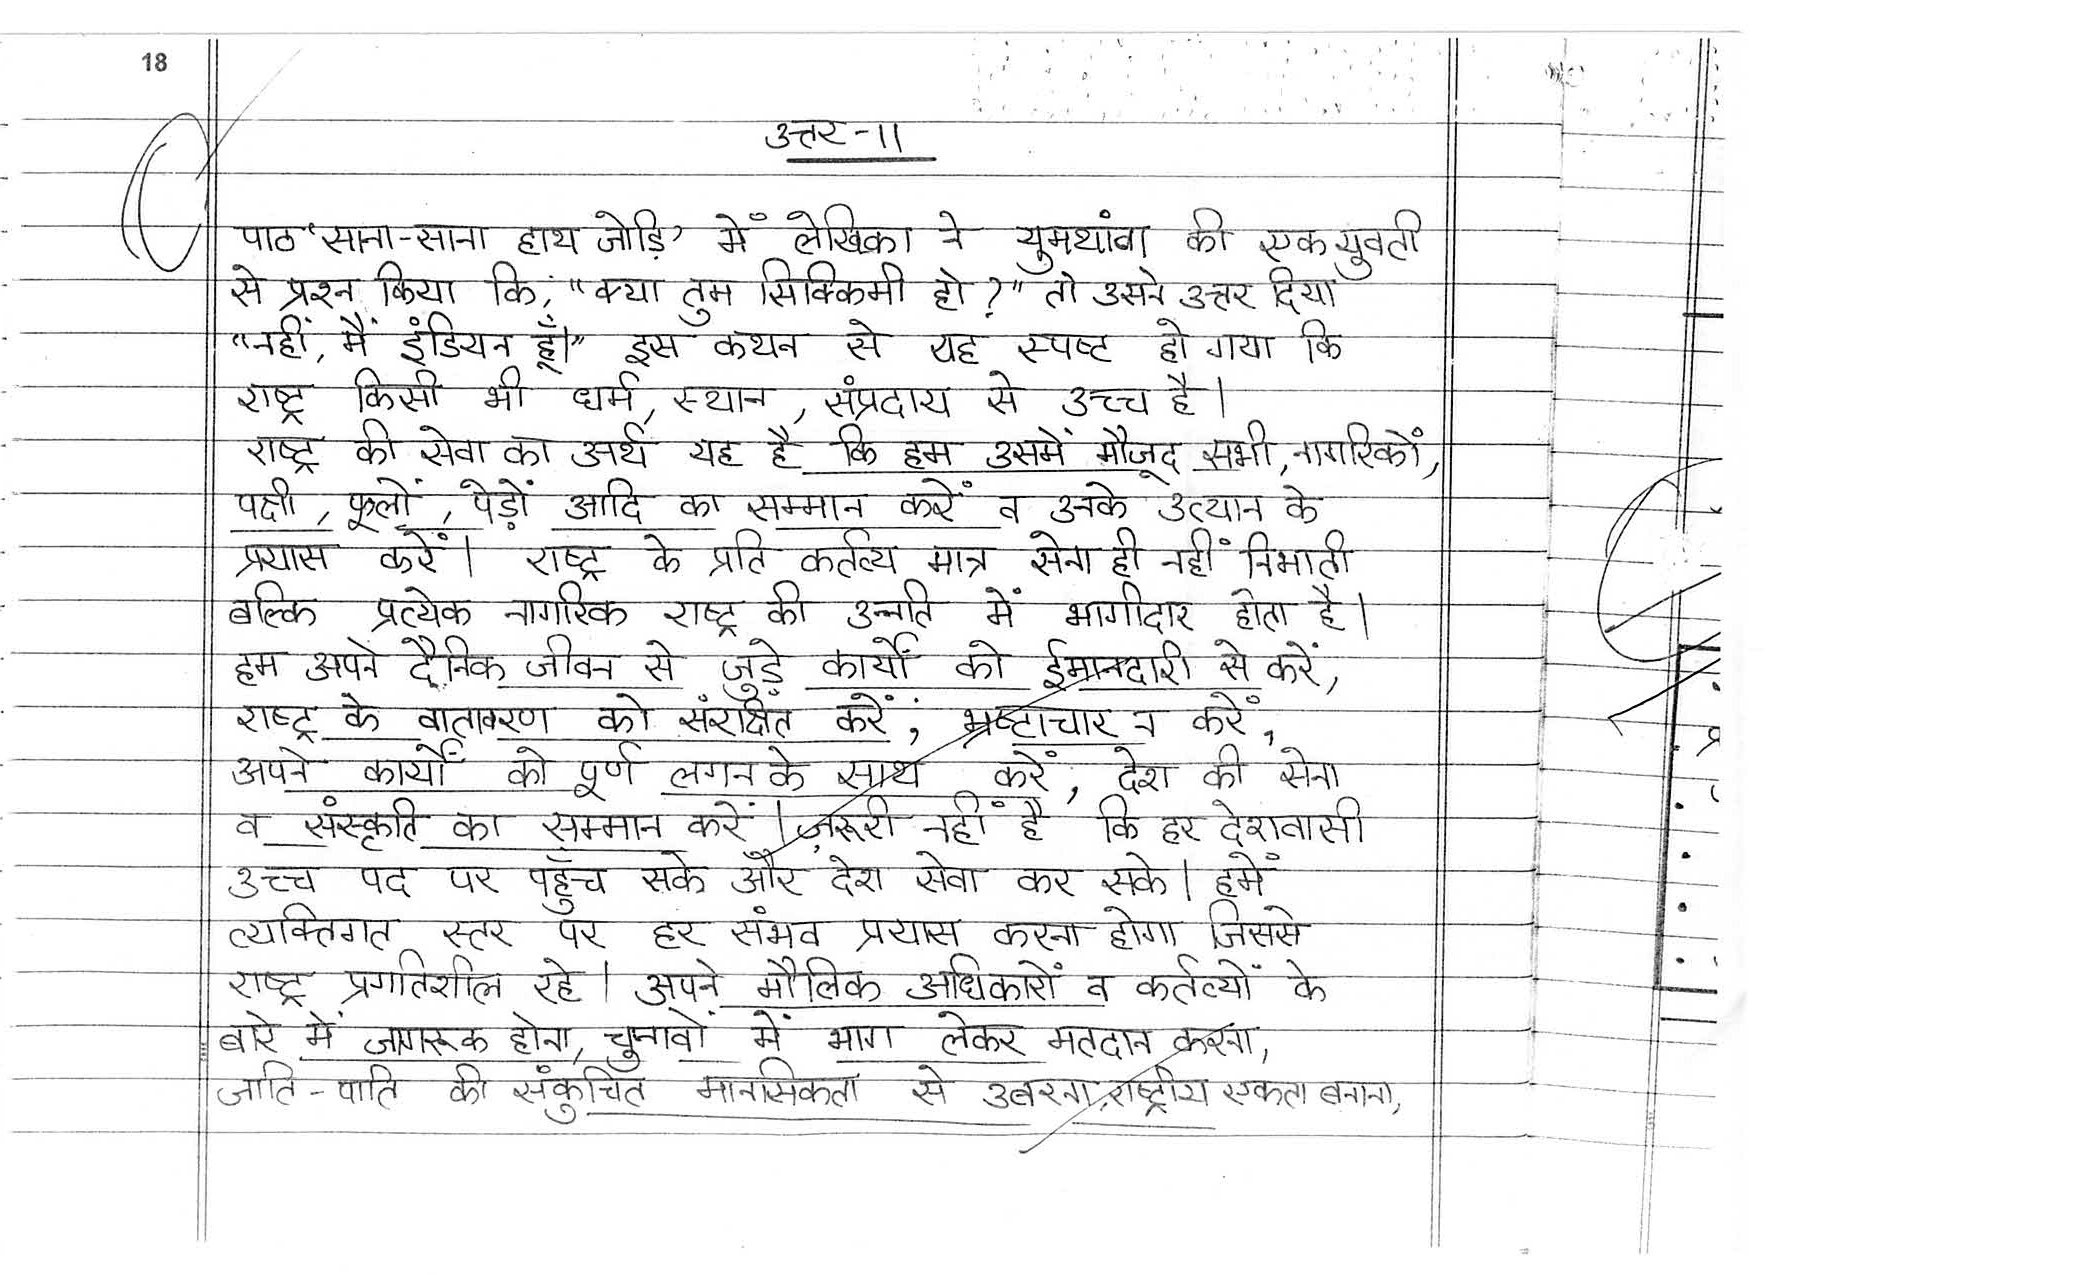 18
उत्तर-11
पाठ 'साना-साना हाथ जोड़ि' में लेखिका ने युमथांग की एक युवती
से प्रश्न किया कि, "क्या तुम सिक्किमी हो?" तो उसने उत्तर दिया
"नहीं, मैं इंडियन हूँ।" इस कथन से यह स्पष्ट हो गया कि
राष्ट्र किसी भी धर्म, स्थान, संप्रदाय से उच्च है।
राष्ट्र की सेवा का अर्थ यह है कि हम उसमें मौजूद सभी, नागरिकों,
पक्षी, फूलों, पेड़ों आदि का सम्मान करें व उनके उत्थान के
प्रयास करें। राष्ट्र के प्रति कर्तव्य मात्र सेना ही नहीं निभाती
बल्कि प्रत्येक नागरिक राष्ट्र की उन्नति में भागीदार होता है।
हम अपने दैनिक जीवन से जुड़े कार्यों को ईमानदारी से करें,
राष्ट्र के वातावरण को संरक्षित करें, भ्रष्टाचार न करें,
अपने कार्यों को पूर्ण लगन के साथ करें, देश की सेना
व संस्कृति का सम्मान करें। ज़रूरी नहीं है कि हर देशवासी
उच्च पद पर पहुँच सके और देश सेवा कर सके। हमें
व्यक्तिगत स्तर पर हर संभव प्रयास करना होगा जिससे
राष्ट्र प्रगतिशील रहे। अपने मौलिक अधिकारों व कर्तव्यों के
बारे में जागरूक होना, चुनावों में भाग लेकर मतदान करना,
जाति-पाति की संकुचित मानसिकता से उबरना, राष्ट्रीय एकता बनाना,